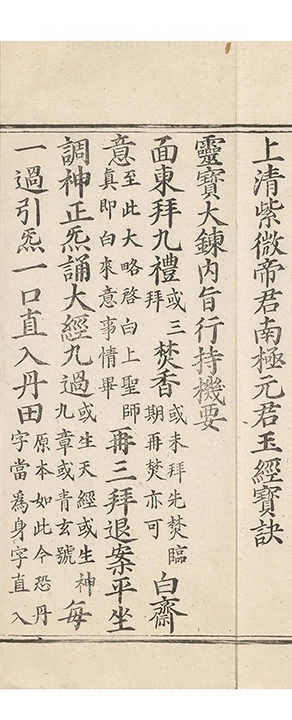 上清紫微帝君南極元君玉經寶訣
靈寶大鍊內旨行持機要
面東拜九禮或三拜焚香或未拜先焚臨期再焚亦可白齋
意至此大略啓白上聖師真即白來意事情畢再三拜退案平坐
調神正炁誦大經九過或生天經或生神九章或青玄號每
一過引炁一口直入丹田原本如此今恐丹字當爲身字直入